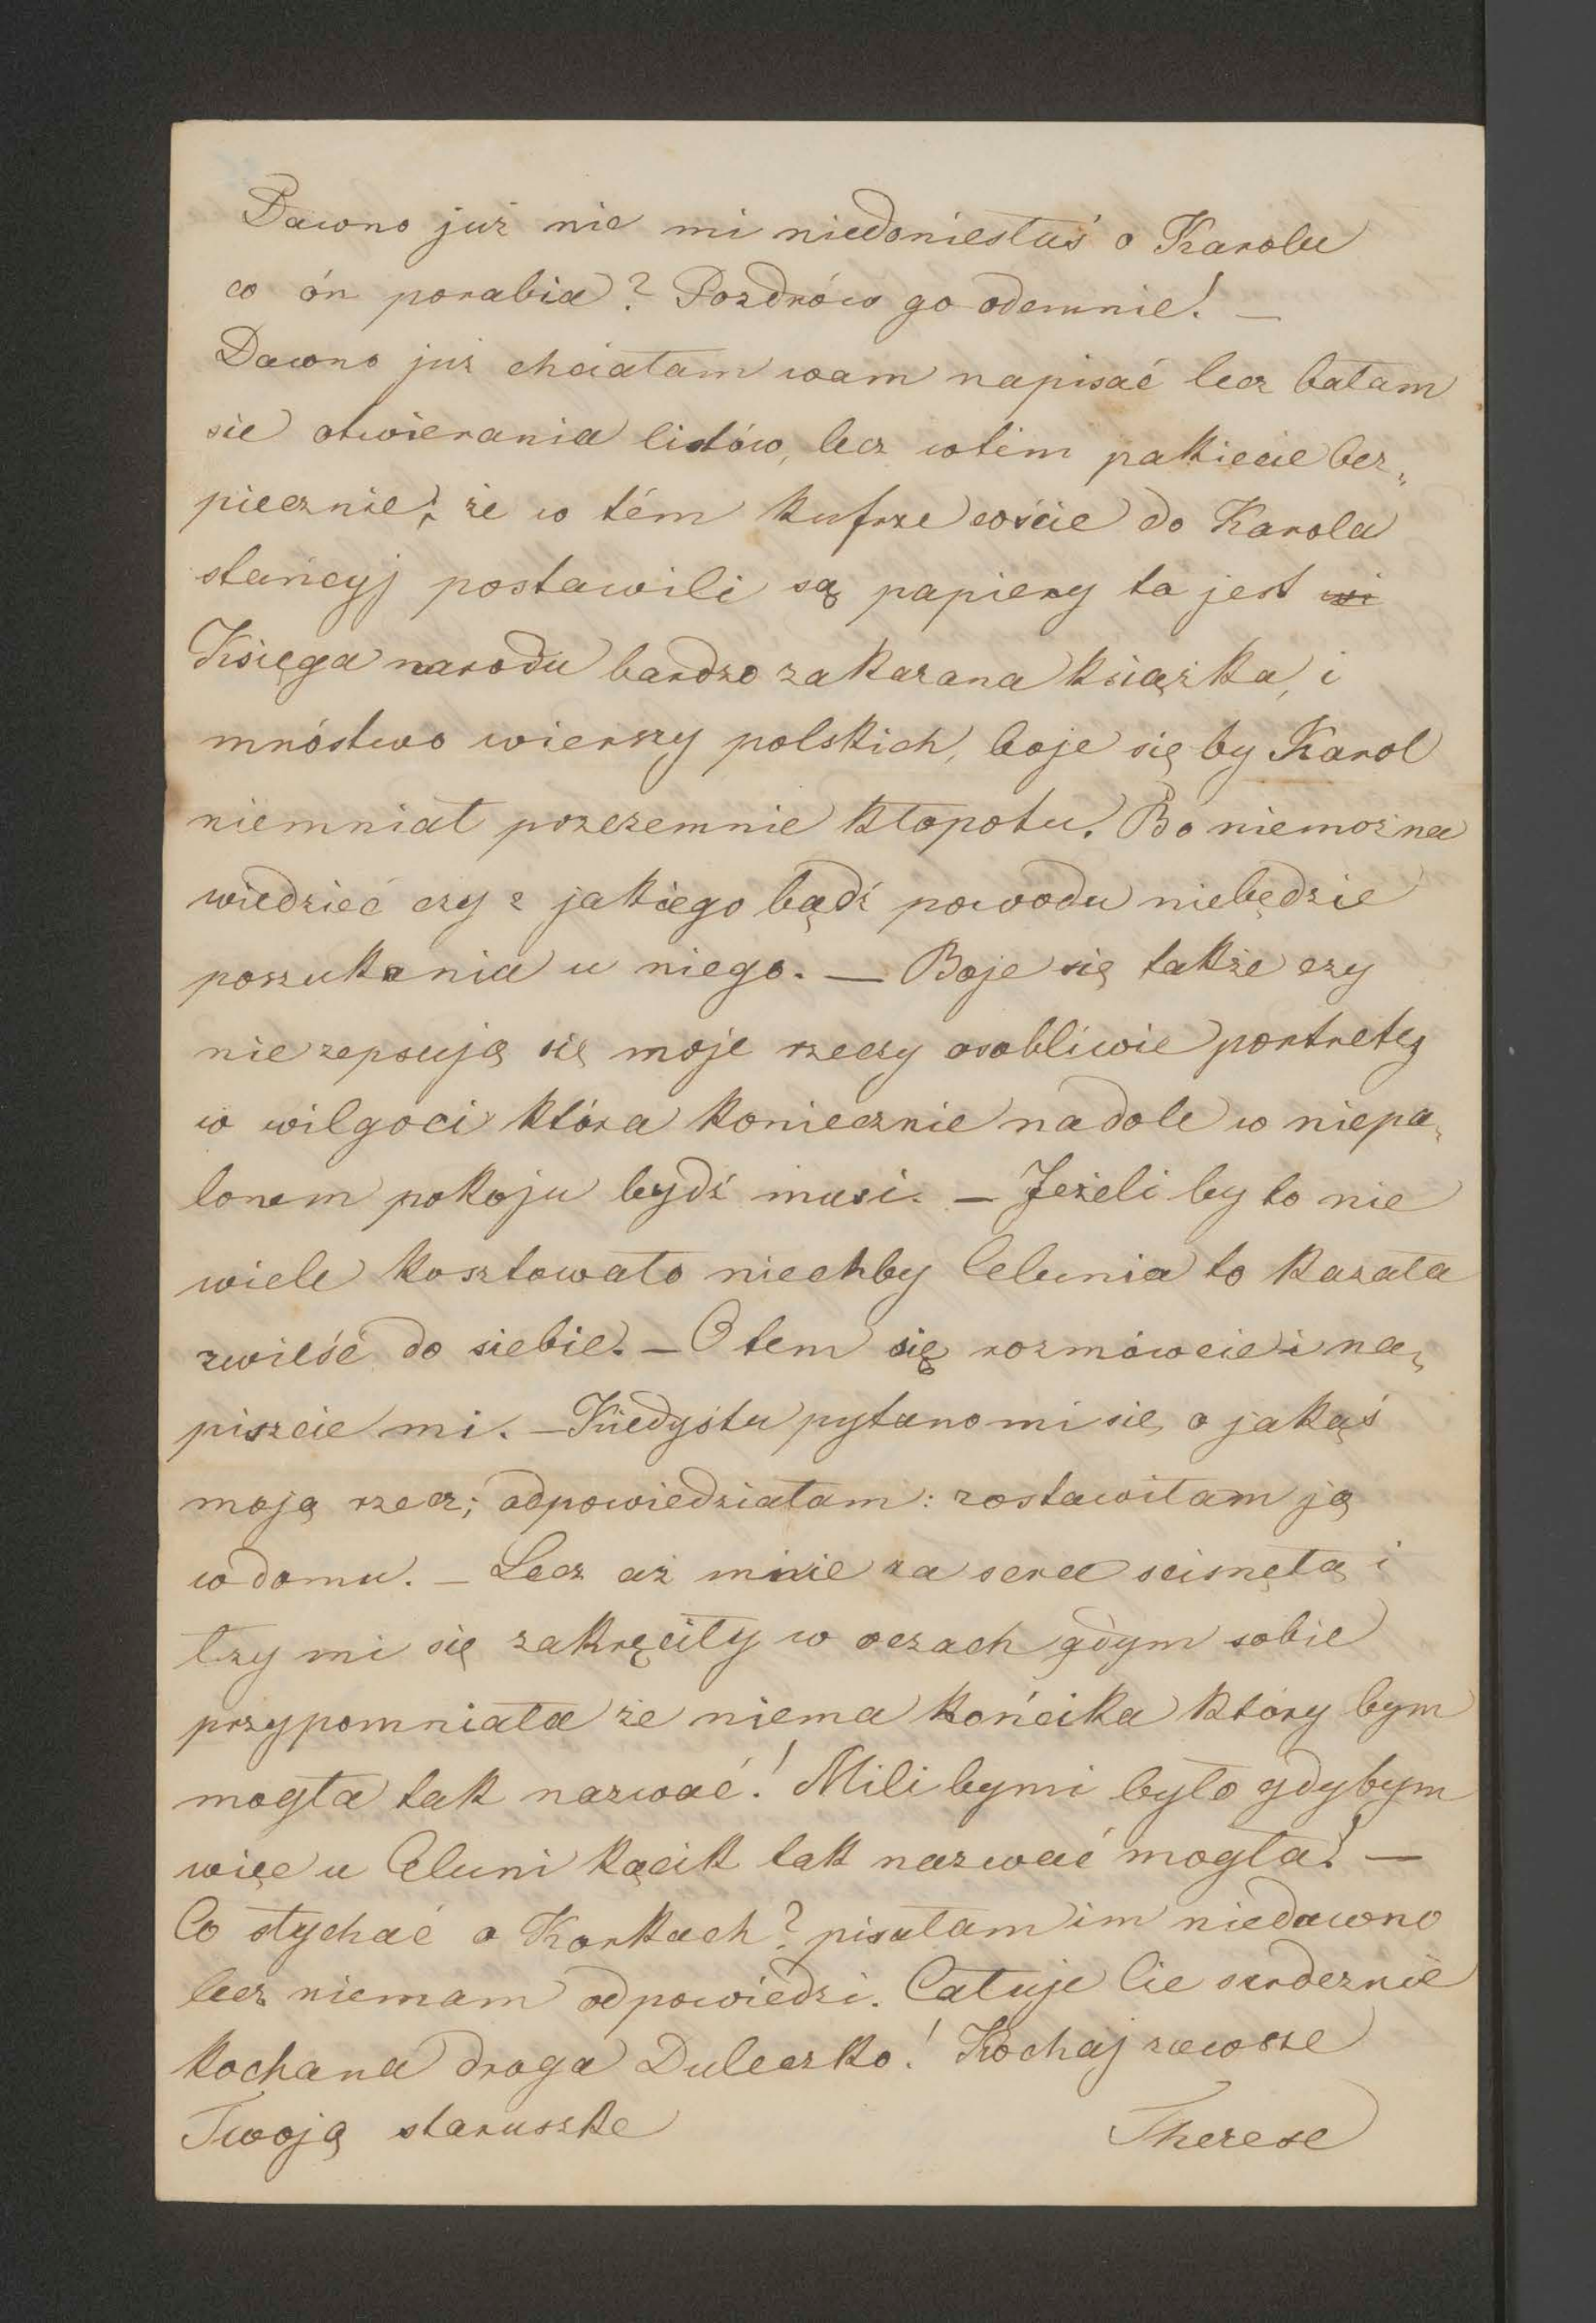 Dawno już nic mi niedoniesłaś o Karolu
co ón porabia? Pozdrów go odemnie! —
Dawno już chciałam wam napisać lecz bałam
sie otwierania listów, lecz wtém pakiecie bez„
piecznie; że w tém kufrze coście do Karola
stancyj postawili są papiery to jest
Księga narodu bardzo zakazana książka, i
mnóstwo wierszy polskich, boje się by Karol
niemniał przezemnie kłopotu. Bo niemożna
wiedzieć czy z jakiego bądź powodu niebędzie
poszukania u niego. — Boje się także czy
nie zepsują się moje rzeczy osobliwie portrety
w wilgoci która koniecznie nadole w niepa„
lonem pokoju bydź musi. — Jeżeli by to nie
wiele kosztowało niechby Celunia to kazała
zwieść do siebie. — O tem się rozmówcie i na„
piszcie mi. — Kiedyśtu pytano mi się o jakąś
moją rzecz; odpowiedziałam: zostawiłam ją
w domu. — Lecz aż mnie za serce scisnęła i
łzy mi się zakręciły w oczach gdym sobie
przypomniała że niema końcika który bym
mogła tak nazwać! Mili bymi było gdybym
więc u Celuni kącik tak nazwać mogła! —
Co słychać o Korkach? pisałam im niedawno
lecz niemam odpowiedzi. Całuje Cie serdecznie
kochana droga Duleczko! Kochaj zawsze
Twoją staruszke Therese